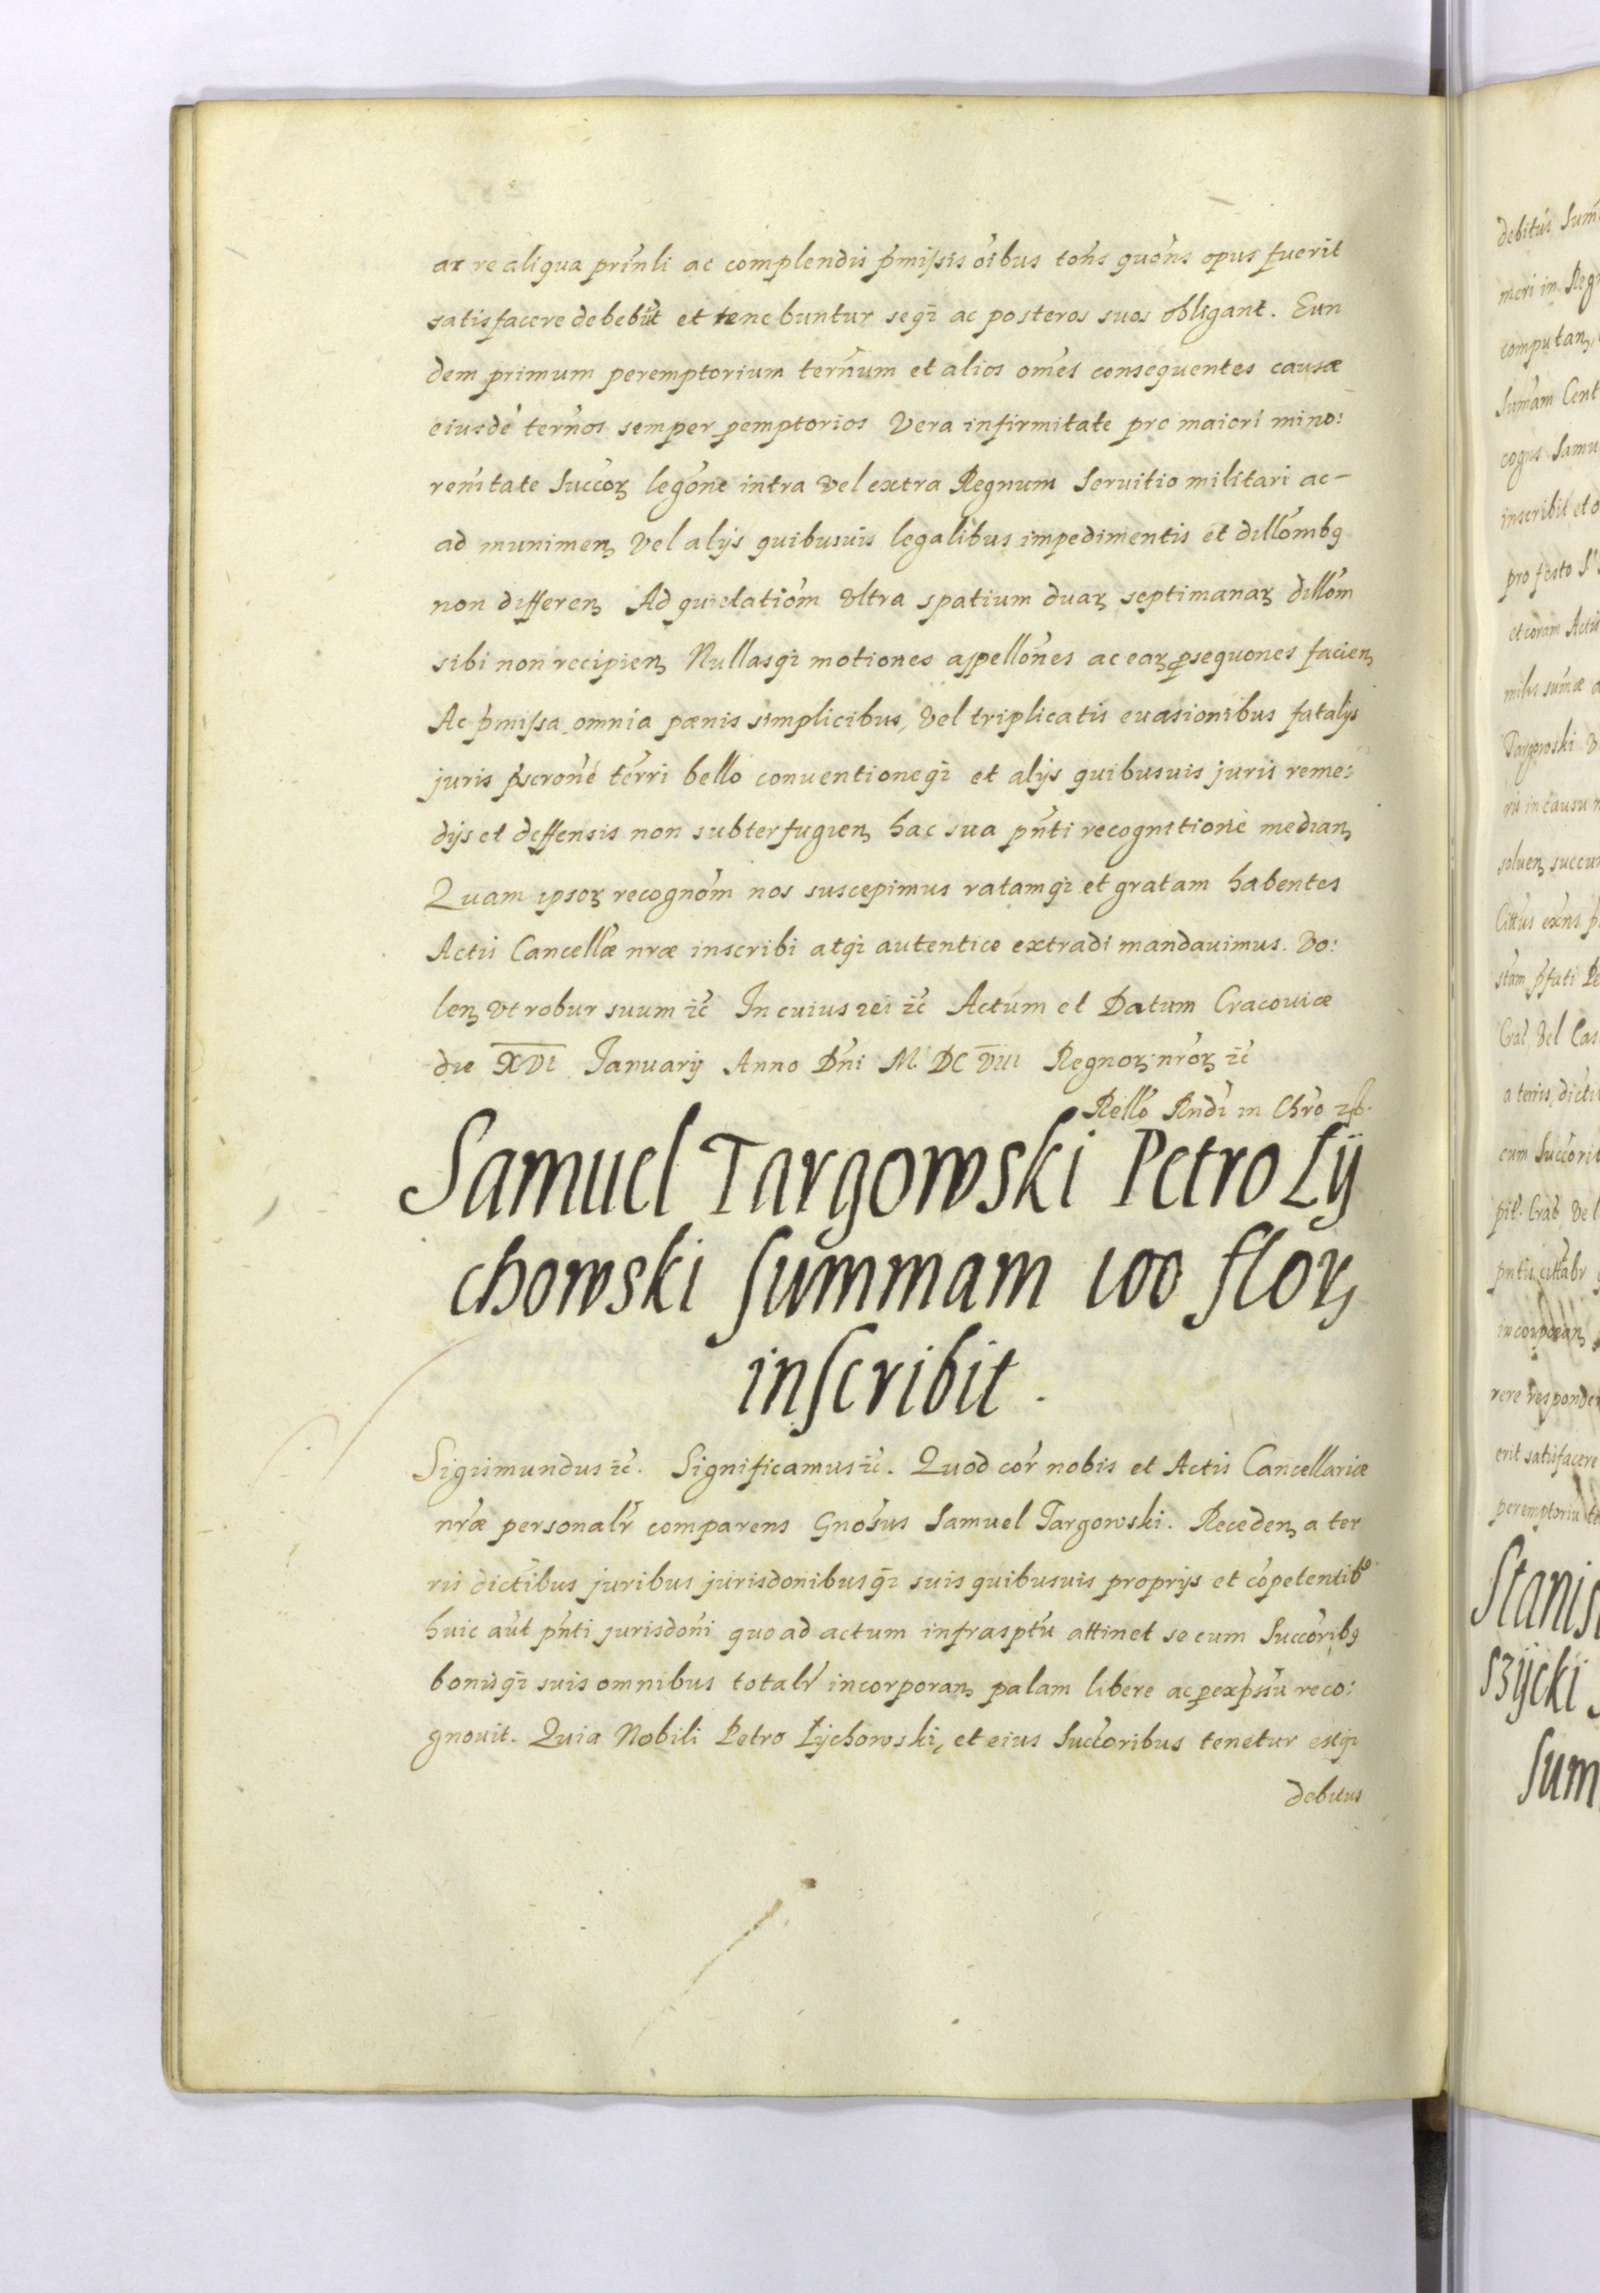 ac re aliqua prin̄li ac complendis p̄missis oībus toñs quoñs opus fuerit
satisfacere debebūt et tenebuntur seqȝ ac posteros suos obligant. Eun
dem primum peremptorium termum et alios om̄es consequentes causæ
eiusdē term̄os semper pemptorios Vera infirmitate pro maiori mino:
remitate Succoꝝ legōne intra vel extra Regnum Seruitio militari ac-
ad munimen Vel alijs quibusuis legalibus impedimentis et dillom̄bȝ
non differen Ad quietatiom̄ Vltra spatium duaꝝ septimanaꝝ dillom̄
sibi non recipien Nullasqȝ motiones appellōnes ac eaꝝ psequones facien
Ac p̄missa omnia pœnis simplicibus, vel triplicatis euasionibus fatalys
juris p̄scronē tērri bello conuentioneqȝ et alijs quibusuis juris reme:
dijs et deffensis non subterfugien hac sua pn̄ti recognitione median
Quam ipsoꝝ recognom̄ nos suscepimus ratamqȝ et gratam habentes
Actis Cancell̄æ nr̄æ inscribi atqȝ autentice extradi mandauimus. Vo:
len vt robur suum ꝛc̄ In cuius rei ꝛc̄ Actum et Datum Cracouiæ
die XVI Januarij Anno Dn̄i M DC VIII Regnoꝝ nr̄oꝝ ꝛc̄
Rell̄o Rn̄di in Chr̄o
Samuel Targowski Petro Ły
chowski summam 100 floꝝ
inscribit.
Sigismundus ꝛc̄. Significamus ꝛc̄. Quod cor̄ nobis et Actis Cancellariæ
nr̄æ personalr̄ comparens Gnōsus Samuel Targowski. Receden a ter
ris dictībus juribus jurisdonibusqȝ suis quibusuis proprijs et cōpetentibȝ
huic aūt pn̄ti jurisdoni quoad actum infrasptū attinet se cum Succoribȝ
bonisqȝ suis omnibus totalr̄ incorporan palam libere ac pexp̄ssū reco:
gnouit. Quia Nobili Petro Łychowski, et eius Succoribus tenetur estqȝ
debitus
debitus Sum̄
meri in Regn
computan
Sum̄am Cent
inscribit et o
pro festo S
et coram Actis
Targowski
soluen succum
a terris dicti
cum Succorib
incorporan
rere responder
erit satisfacere
peremptoriu te
Stanis
szycki
sum